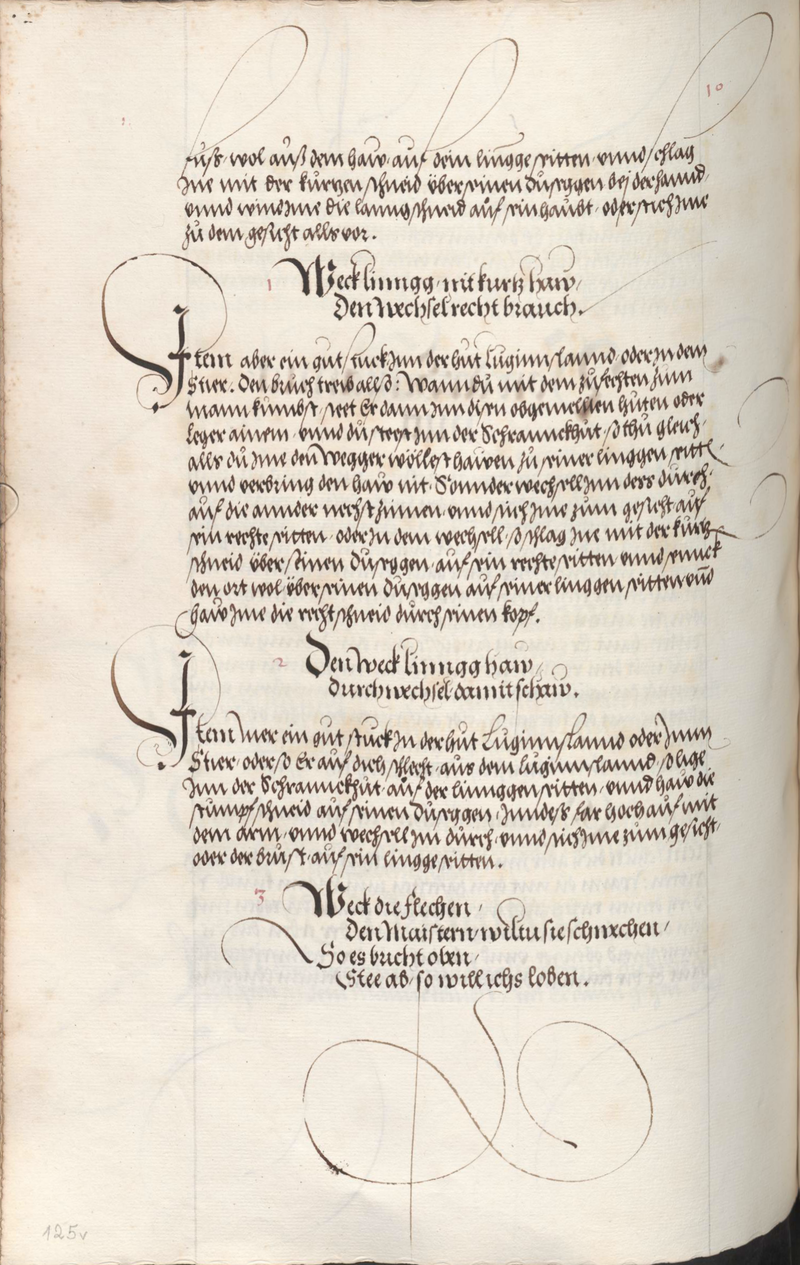 10
fuß, wol auß dem haw, auf dein lingge seitten, vnnd schlag
Ime mit der kurtzen schneid über seinen Dusggen bej der hannd,
vnnd wind Ime die lanng schneid auf sein haubt, oder stich Ime
zu dem gesicht alls vor.
1 Weck linngg, mit kurtz haw,
Den Wechsel recht brauch.
Item aber ein gut stuck Inn der hut Luginnslannd, oder In dem
Stier. Den bruch treib allso: Wann du mit dem zufechten zum
mann kumbst, stet Er dann Inn disen obgemelten huten oder
leger ainem, vnnd du steest Inn der Schranckhut, so thu gleich,
alls du Ime den Wegger wöllest hawen zu seiner linggen seitt,
vnnd verbring den haw nit, Sonnder wechsell Inn des durch,
auf die annder nechst zinnen, vnnd stich Ime zum gesicht auf
sein rechte seitten, oder In dem wechsell, so schlag Ime mit der kurtz
schneid über seinen Dusggen, auf sein rechte seitten vnnd truck
den ort wol über seinen Dusggen auf seiner linggen seitten vnd
haw Ime die recht schneid durch seinen kopf.
2 Den Weck linngg haw,
durchwechsel, damit schaw.
Item Mer ein gut stuck In der hut Luginnslannd oder Inn
Stier, oder so Er auf dich schlecht, aus dem luginnslannd, so lige
Inn der Schranckhut, auf der linnggen seitten, vnnd haw die
stumpf schneid auf seinen Dusggen, Inndess far hoch auf mit
dem arm, vnnd wechsell Im durch, vnnd stich Ime zum gesicht,
oder der brust, auf sein lingge seitten.
3 Weck die flechen,
Den Maistern, wiltu sie schwechen,
So es bricht oben,
Stee ab, so will ichs loben.
125v